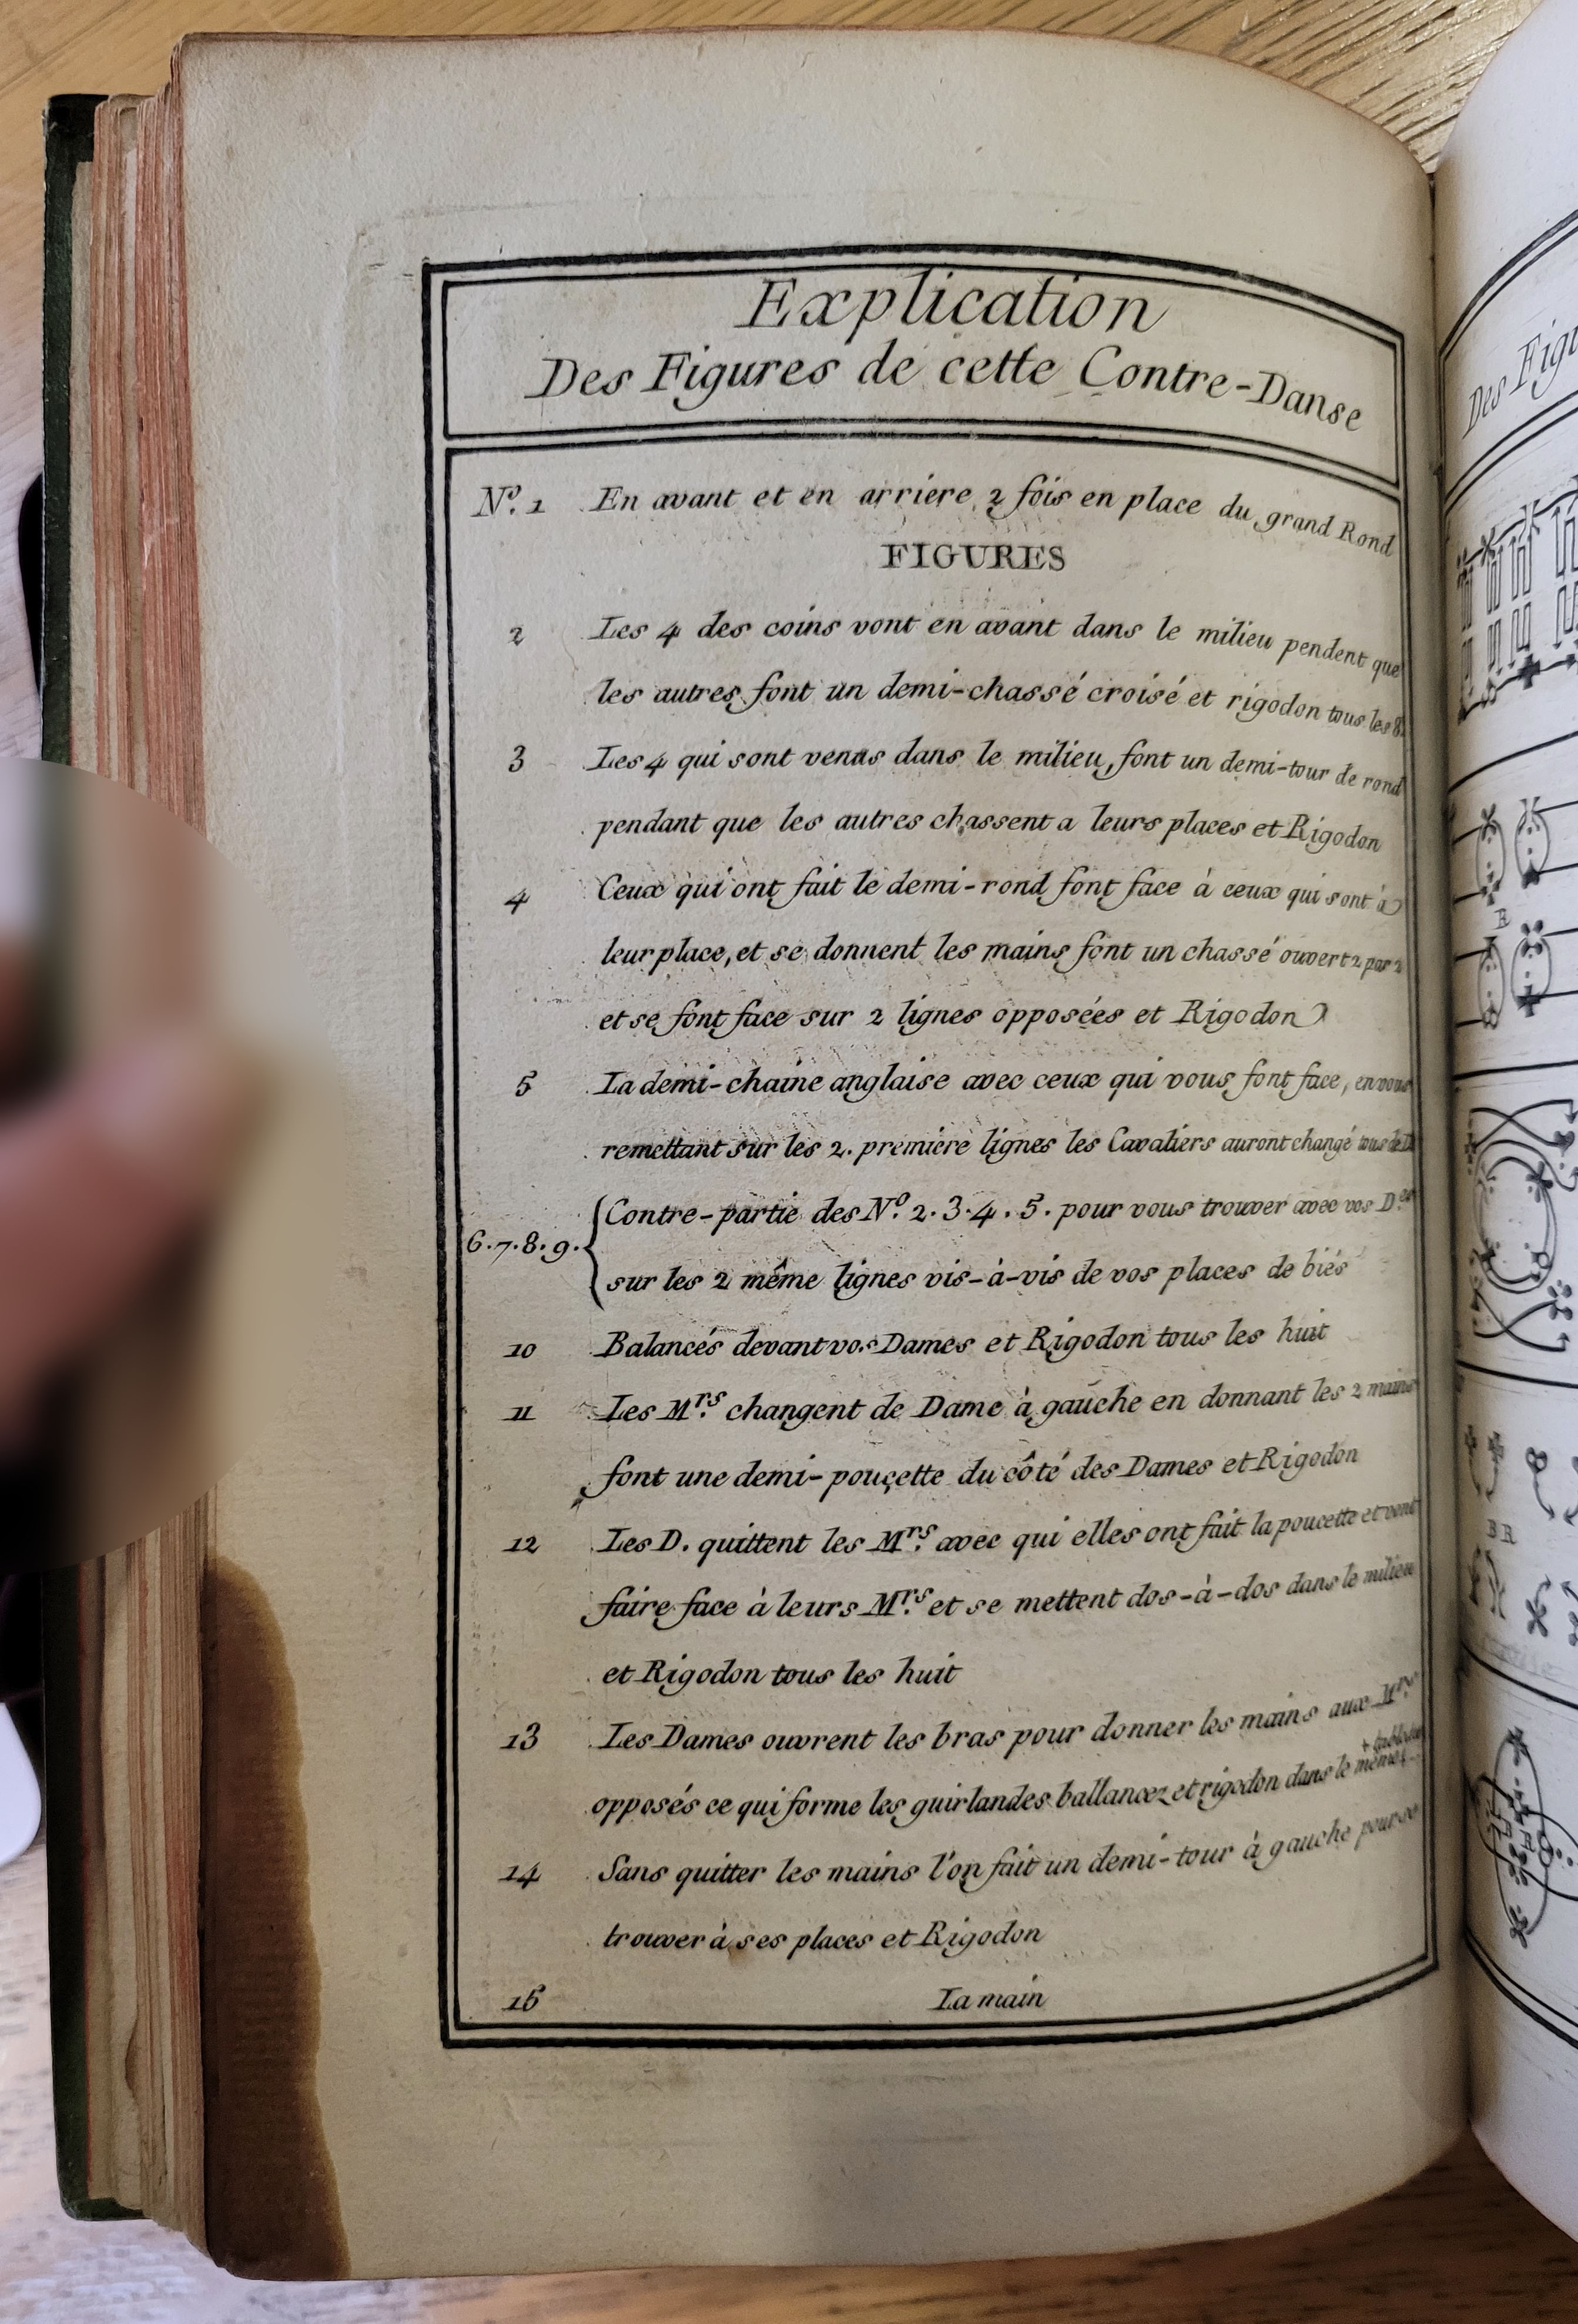 Explication
Des Figures de cette Contre-Danse
N.º 1 En avant et en arriere 2 fois en place du grand Rond
FIGURES
2 Les 4 des coins vont en avant dans le milieu pendent que
les autres font un demi-chassé croisé et rigodon tous les 8
3 Les 4 qui sont venus dans le milieu, font un demi-tour de rond
pendant que les autres chassent a leurs places et Rigodon
4 Ceux qui ont fait le demi-rond font face à ceux qui sont à
leur place, et se donnent les mains font un chassé ouvert 2 par 2
et se font face sur 2 lignes opposées et Rigodon
5 La demi-chaine anglaise avec ceux qui vous font face, en vous
remettant sur les 2. premiére lignes les Cavaliers auront changé tous de
6.7.8.9. { Contre-partie des N.º 2.3.4.5. pour vous trouver avec vos D.es
sur les 2 même lignes vis-à-vis de vos places de biés
10 Balancés devant vos Dames et Rigodon tous les huit
11 Les M.rs changent de Dame à gauche en donnant les 2 mains
font une demi-pouçette du côté des Dames et Rigodon
12 Les D. quittent les M.rs avec qui elles ont fait la poucette et vont
faire face à leurs M.rs et se mettent dos-à-dos dans le milieu
et Rigodon tous les huit
13 Les Dames ouvrent les bras pour donner les mains aux M.rs
opposés ce qui forme les guirlandes ballancez et rigodon dans le même +
+ tableau
14 Sans quitter les mains l'on fait un demi-tour à gauche pour se
trouver à ses places et Rigodon
15 La main
Des Figu